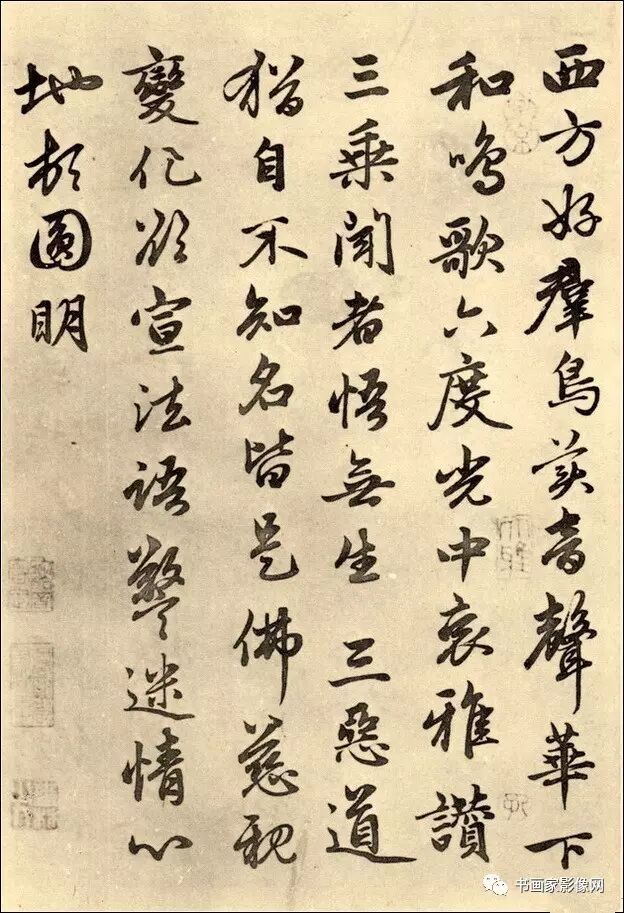 西方好羣鳥美音聲華下
和鳴歌六度光中哀雅讚
三乘聞者悟無生 三惡道
猶自不知名皆是佛慈親
變化欲宣法語警迷情心
地頓圓明
书画家影像网